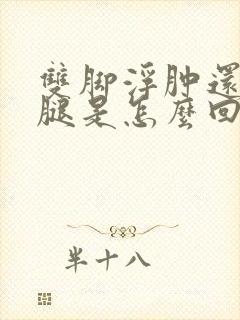 雙脚浮肿還
腿是怎麼回
半十八